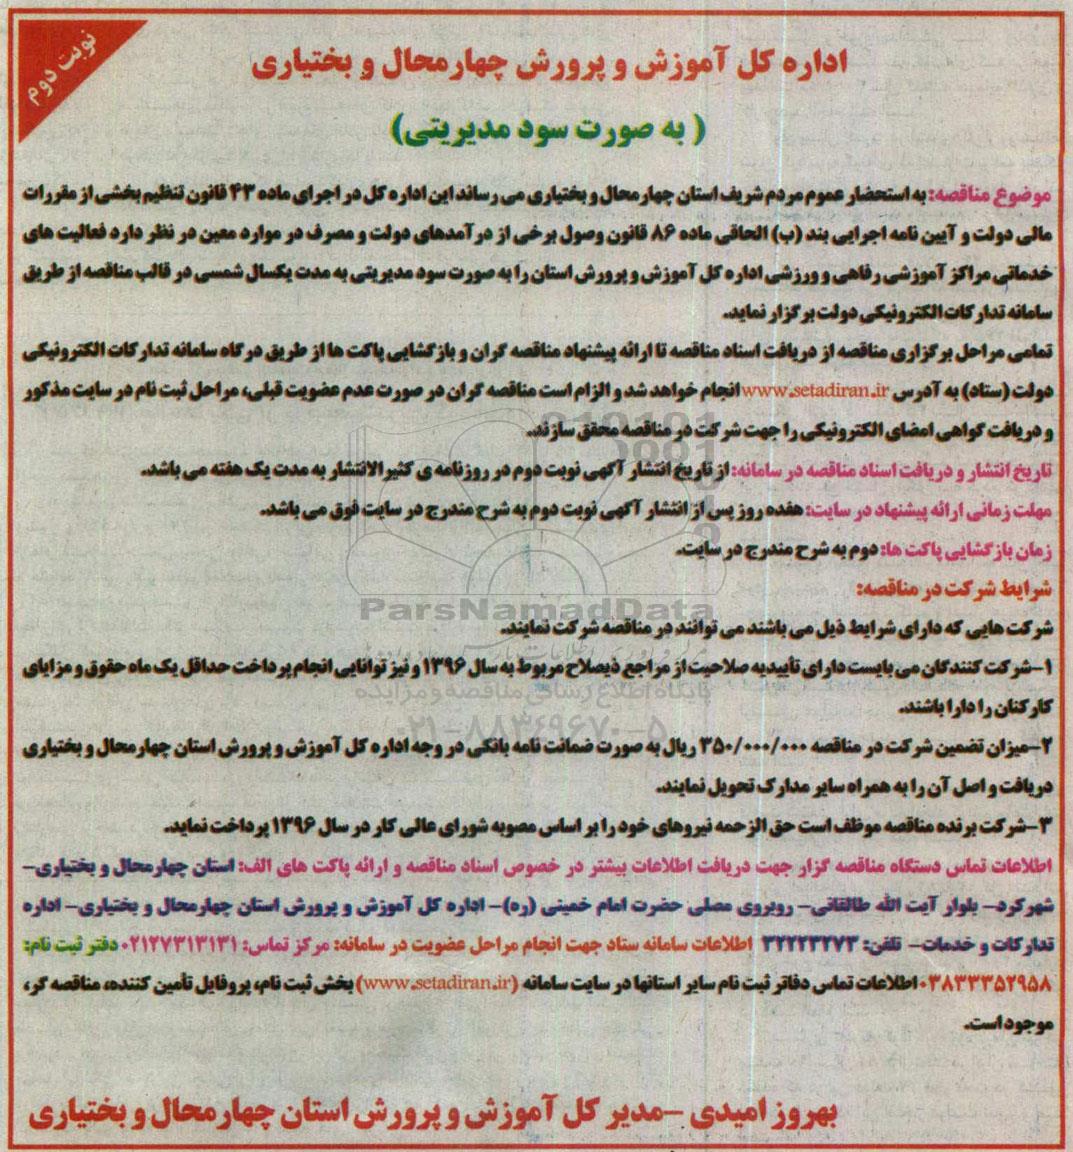 نوبت دوم
اداره کل آموزش و پرورش چهارمحال و بختیاری
( به صورت سود مدیریتی)
موضوع مناقصه: به استحضار عموم مردم شریف استان چهارمحال و بختیاری می رساند این اداره کل در اجرای ماده ۴۳ قانون تنظیم بخشی از مقررات
مالی دولت و آیین نامه اجرایی بند (ب) الحاقی ماده ۸۶ قانون وصول برخی از درآمدهای دولت و مصرف در موارد معین در نظر دارد فعالیت های
خدماتی مراکز آموزشی رفاهی و ورزشی اداره کل آموزش و پرورش استان را به صورت سود مدیریتی به مدت یکسال شمسی در قالب مناقصه از طریق
سامانه تدارکات الکترونیکی دولت برگزار نماید.
تمامی مراحل برگزاری مناقصه از دریافت اسناد مناقصه تا ارائه پیشنهاد مناقصه گران و بازگشایی پاکت ها از طریق درگاه سامانه تدارکات الکترونیکی
دولت (ستاد) به آدرس www.setadiran.ir انجام خواهد شد و الزام است مناقصه گران در صورت عدم عضویت قبلی، مراحل ثبت نام در سایت مذکور
و دریافت گواهی امضای الکترونیکی را جهت شرکت در مناقصه محقق سازند.
تاریخ انتشار و دریافت اسناد مناقصه در سامانه: از تاریخ انتشار آگهی نوبت دوم در روزنامه ی کثیرالانتشار به مدت یک هفته می باشد.
مهلت زمانی ارائه پیشنهاد در سایت: هفده روز پس از انتشار آگهی نوبت دوم به شرح مندرج در سایت فوق می باشد.
زمان بازگشایی پاکت ها: دوم به شرح مندرج در سایت.
شرایط شرکت در مناقصه:
ParsNamadData
شرکت هایی که دارای شرایط ذیل می باشند می توانند در مناقصه شرکت نمایند.
۱-شرکت کنندگان می بایست دارای تأییدیه صلاحیت از مراجع ذیصلاح مربوط به سال ۱۳۹۶ و نیز توانایی انجام پرداخت حداقل یک ماه حقوق و مزایای
پایگاه اطلاع رسانی مناقصه و مزایده
کارکنان را دارا باشند.
۰۲۱-۸۸۳۴۹۶۷۰-۵
۲-میزان تضمین شرکت در مناقصه ۳۵۰/۰۰۰/۰۰۰ ریال به صورت ضمانت نامه بانکی در وجه اداره کل آموزش و پرورش استان چهارمحال و بختیاری
دریافت و اصل آن را به همراه سایر مدارک تحویل نمایند.
۳-شرکت برنده مناقصه موظف است حق الزحمه نیروهای خود را بر اساس مصوبه شورای عالی کار در سال ۱۳۹۶ پرداخت نماید.
اطلاعات تماس دستگاه مناقصه گزار جهت دریافت اطلاعات بیشتر در خصوص اسناد مناقصه و ارائه پاکت های الف: استان چهارمحال و بختیاری-
شهرکرد- بلوار آیت الله طالقانی- روبروی مصلی حضرت امام خمینی (ره)- اداره کل آموزش و پرورش استان چهارمحال و بختیاری- اداره
تدارکات و خدمات- تلفن: ۳۲۲۲۳۲۷۳ اطلاعات سامانه ستاد جهت انجام مراحل عضویت در سامانه: مرکز تماس: ۰۲۱۲۷۳۱۳۱۳۱ دفتر ثبت نام:
۰۳۸۳۳۳۵۲۹۵۸ اطلاعات تماس دفاتر ثبت نام سایر استانها در سایت سامانه (www.setadiran.ir) بخش ثبت نام، پروفایل تأمین کننده، مناقصه گر،
موجود است.
بهروز امیدی -مدیر کل آموزش و پرورش استان چهارمحال و بختیاری